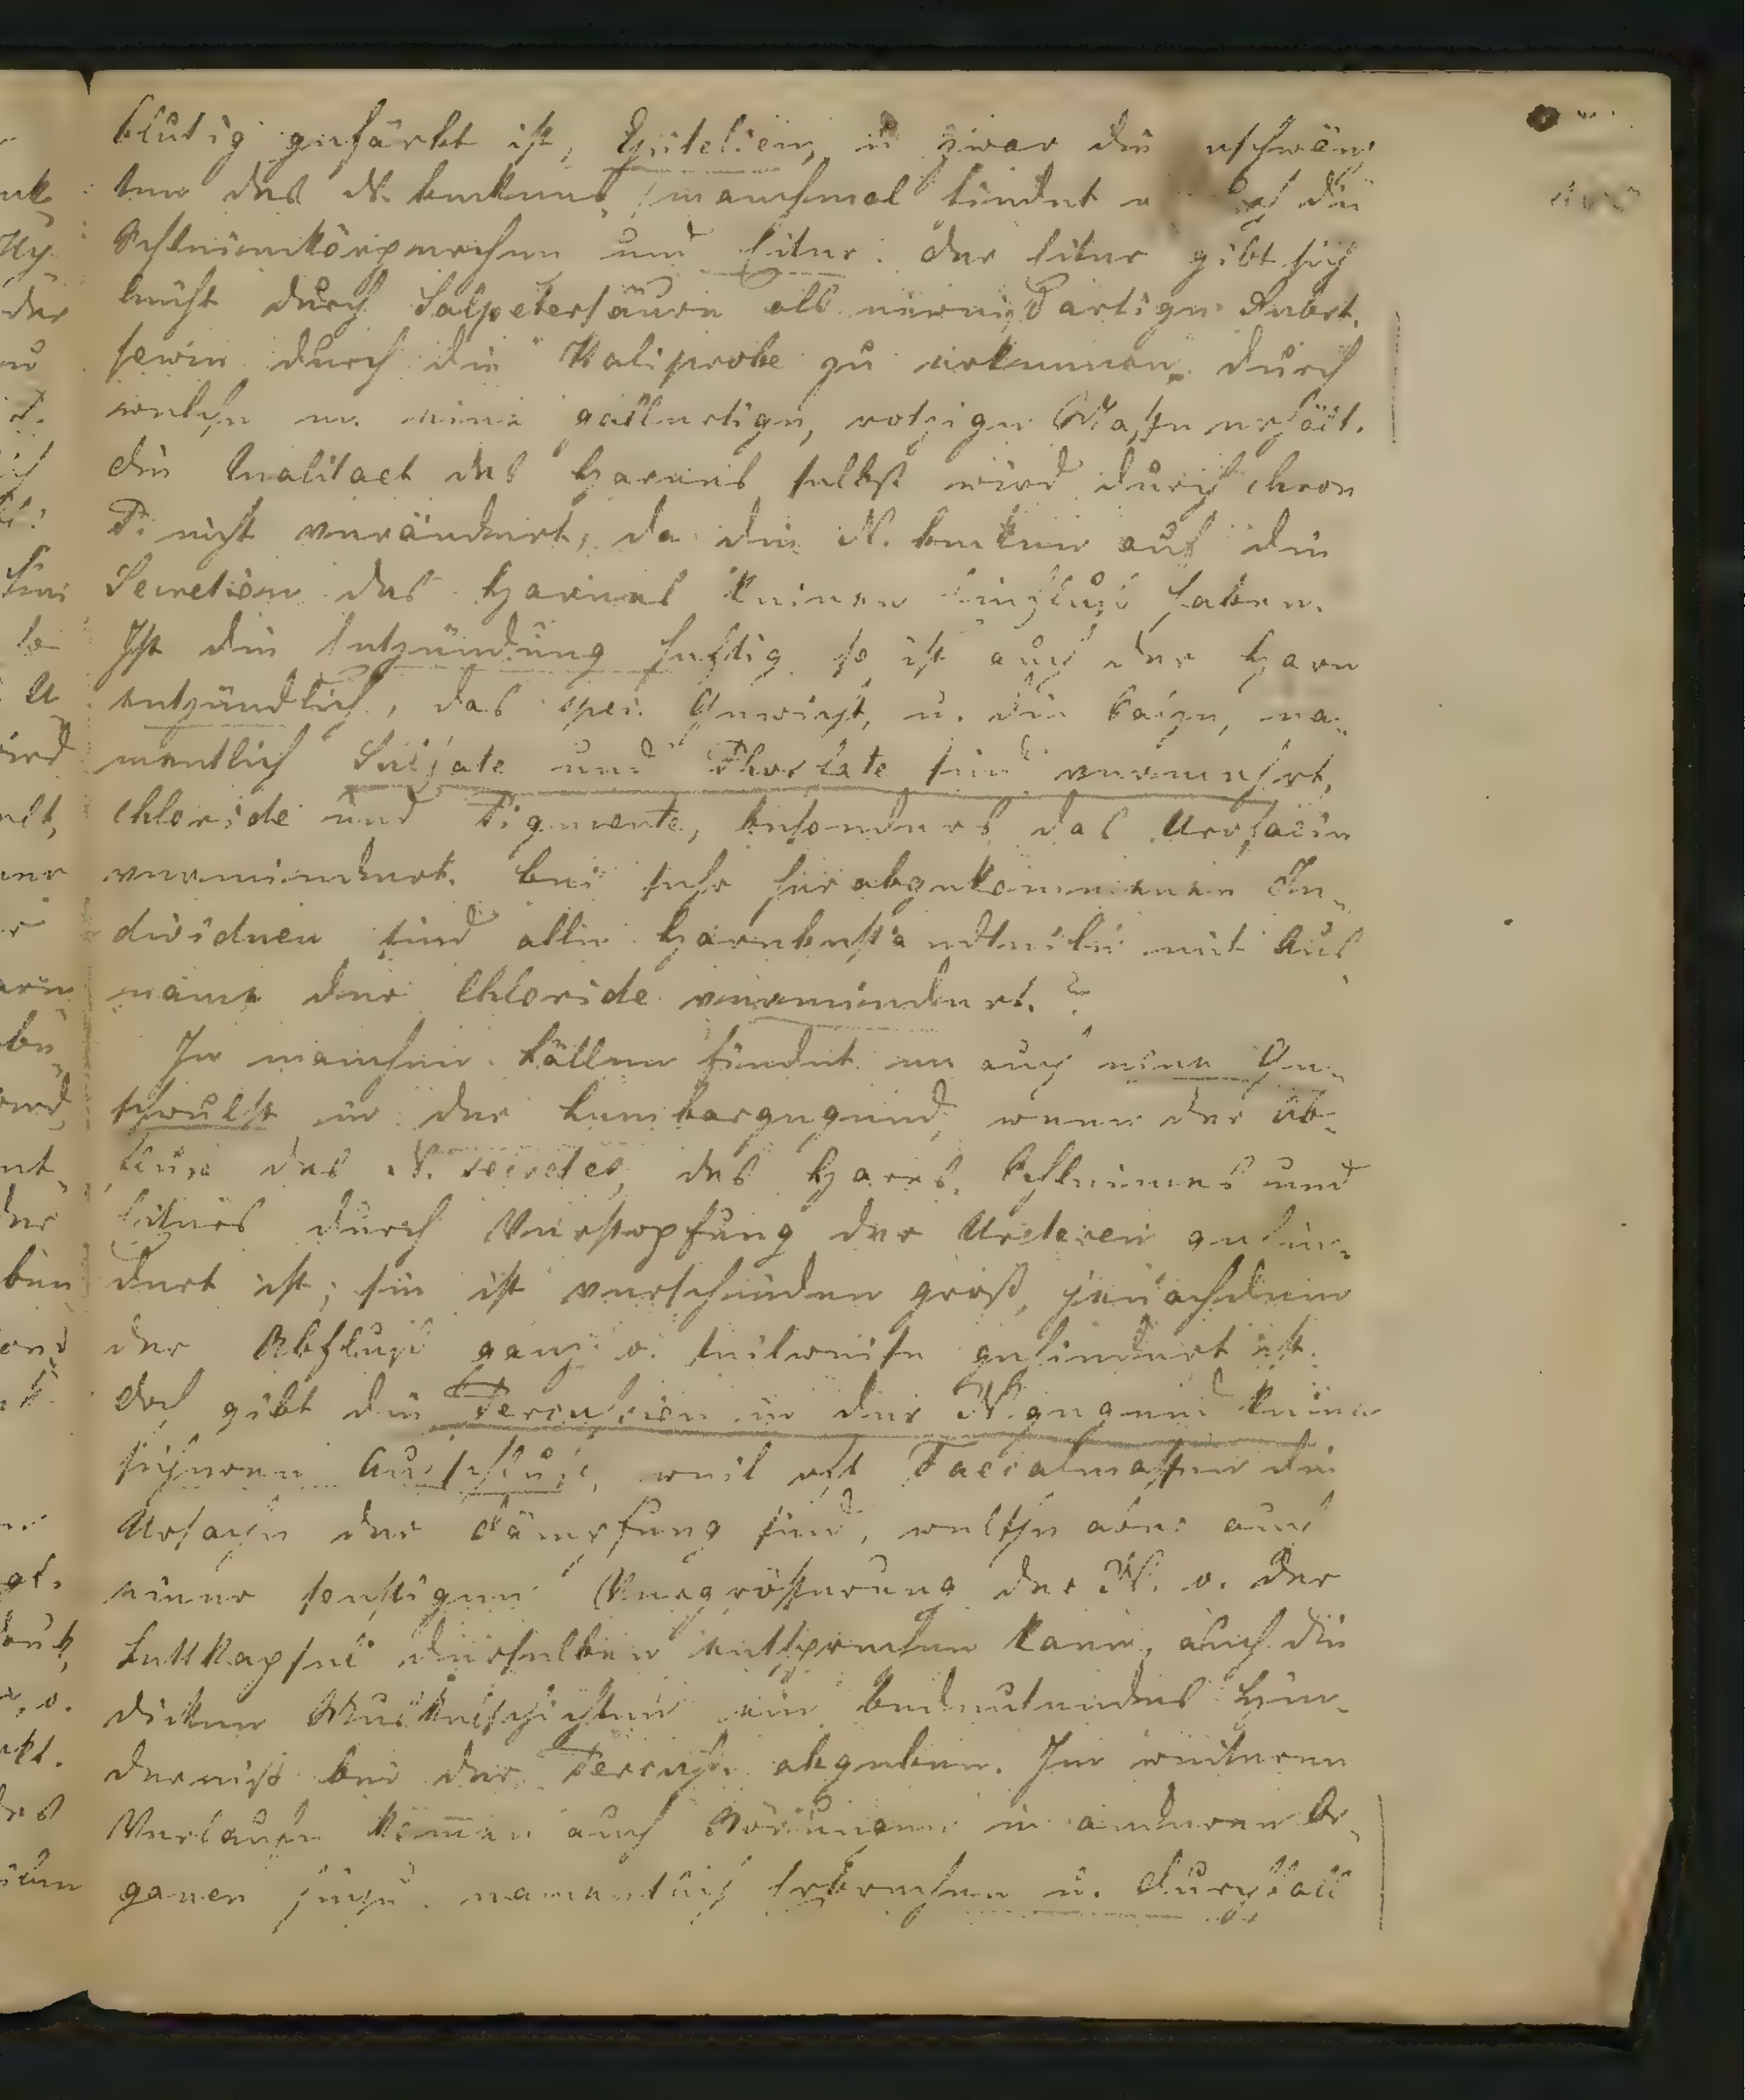 blutig gefärbt ist, Epitelien, u zwar die geschwänz
ten des N. beckens, manchmal findet m die
Schleimkörperchen und Eiter. der Eiter gibt sich
leicht durch Salpetersäure als eiweisartige Subst.
sowie durch die Kaliprobe zu erkennen, durch
welche m. eine gallertige, rotzige Masse erhält.
die Qualitaet des Harnes selbst wird durch chron
P. nicht verändert, da die N. becken auf die
Secretion des Harnes keinen Einfluß haben.
Ist die Entzündung heftig so ist auch der Harn
entzündlich, das spec. Gewicht, u. die Salze, na-
mentlich Sulfate und Phosfate sind vermehrt,
chloride und Pigmente, besonders das Urofaein
vermindert. bei sehr herabgekommenen In-
dividuen sind alle Harnbestandteile mit Aus
name der Chloride vermindert.?
In manchen Fällen findet m auch eine Ge-
schwulst in der Lumbargegend, wenn der Ab-
fluss des N. secretes, des Harns, Schleimes und
Eiters durch Verstopfung der Ureteren gehin-
dert ist; sie ist verschieden groß, jenachdem
der Abfluß ganz o. teilweise gehindert ist.
doch gibt die Percussion in der N. gegend keinen
sicheren Aufschluss, weil oft Faecalmassen die
Ursache der Dämpfung sind, welche aber auch
einer sonstigen Vergrösserung der N. o. der
Fettkapsel derselben entsprechen kann, auch die
dicken Muskelschichten ein bedeutendes Hin-
derniß bei der Percuss. abgeben. Im weiteren
Verlaufe kommen auch Störungen in anderen Or-
ganen hinzu, namentlich Erbrechen u. Durchfall